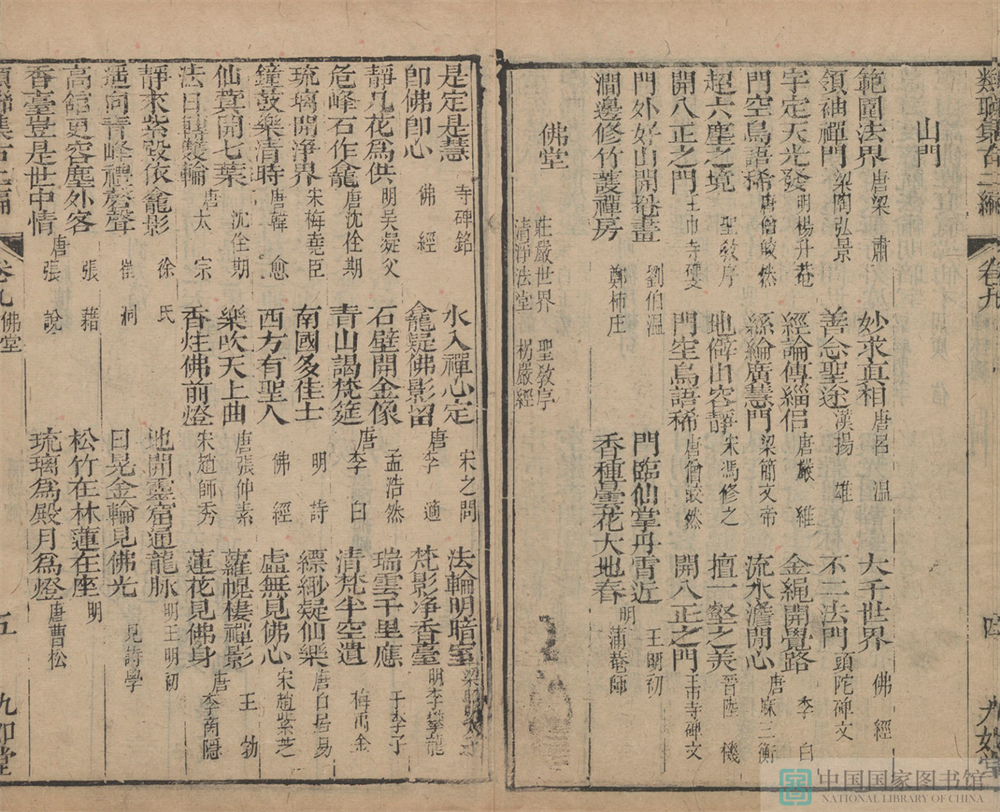 類聯集古二編 卷九
山門
範圍法界 唐梁 肅 妙求真相 唐呂 溫 大千世界 佛 經
領袖禪門 梁陶弘景 善念聖途 漢揚 雄 不二法門 頭陀碑文
宇定天光發 明楊升菴 經論傳緇侶 唐嚴 維 金繩開覺路 唐李 白
門空鳥語稀 唐僧皎然 絲綸廣慧門 梁簡文帝 流水澹閒心
超六塵之境 聖敎序 地僻山容靜 宋馮修之 擅一壑之美 晉陸 機
開八正之門 王巾寺碑文 門生鳥語稀 唐僧皎然 開八正之門 王巾寺碑文
門外好山開捲畫 劉伯溫 門臨仙掌丹霄近 王明初
澗邊修竹護禪房 鄭柿庄 香種曇花大地春 明蒲菴師
佛堂
莊嚴世界 聖敎序
清淨法堂 楞嚴經
是定是慧 寺碑銘 水入禪心定 宋之問 法輪明暗室
卽佛卽心 佛 經 龕疑佛影留 唐李 適 梵影净香臺 明李攀龍
靜几花為供 明吳凝父 石壁開金像 孟浩然 瑞雲千里應
危峰石作龕 唐沈佺期 青山謁梵筵 唐李 白 清梵半空遺 梅禹金
琉璃開淨界 宋梅堯臣 南國多佳士 明 詩 縹緲疑仙樂 唐白居易
鐘鼓樂清時 唐韓 愈 西方有聖人 佛 經 虛無見佛心 宋趙紫芝
仙蓂開七葉 沈佺期 樂吹天上曲 唐張仲素 蘿幌棲禪影 王 勃
法日轉雙輪 唐太 宗 香炷佛前燈 宋趙師秀 蓮花見佛身 唐李商隱
靜來紫殿依龕影 徐 氏 地開靈窟通龍脉 明王明初
遥向青峰禮磬聲 崔 峒 日晃金輪見佛光 見詩學
高館更容塵外客 張 藉 松竹在林蓮在座 明
香臺豈是世中情 唐張 說 琉璃為殿月為燈 唐曹松
類聯集古二編 卷九 佛堂 五 九如堂
中国国家图书馆
NATIONAL LIBRARY OF CHINA